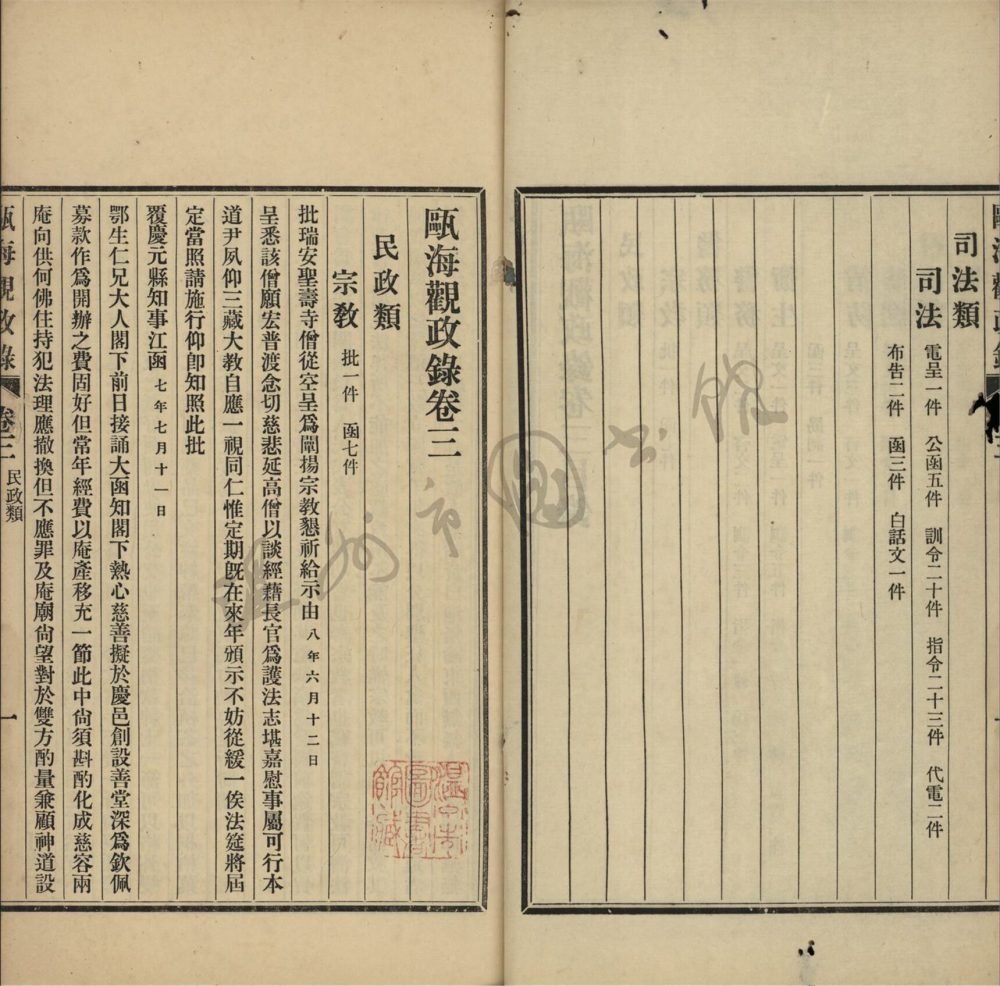 司法類
司法
電呈一件 公函五件 訓令二十件 指令二十三件 代電二件
布告二件 函三件 白話文一件
甌海觀政錄卷三
民政類
宗教 批一件 函七件
批瑞安聖壽寺僧從空呈爲闡揚宗教懇祈給示由 八年六月十二日
呈悉該僧願宏普渡念切慈悲延高僧以談經藉長官爲護法志堪嘉慰事屬可行本
道尹夙仰三藏大教自應一視同仁惟定期旣在來年頒示不妨從緩一俟法筵將屆
定當照請施行仰卽知照此批
覆慶元縣知事江函 七年七月十一日
鄂生仁兄大人閣下前日接誦大函知閣下熱心慈善擬於慶邑創設善堂深爲欽佩
募款作爲開辦之費固好但常年經費以庵產移充一節此中尙須斟酌化成慈容兩
庵向供何佛住持犯法理應撤換但不應罪及庵廟尙望對於雙方酌量兼顧神道設
甌海觀政錄 卷三 民政類 一
溫州市圖書館藏
溫州市圖書館